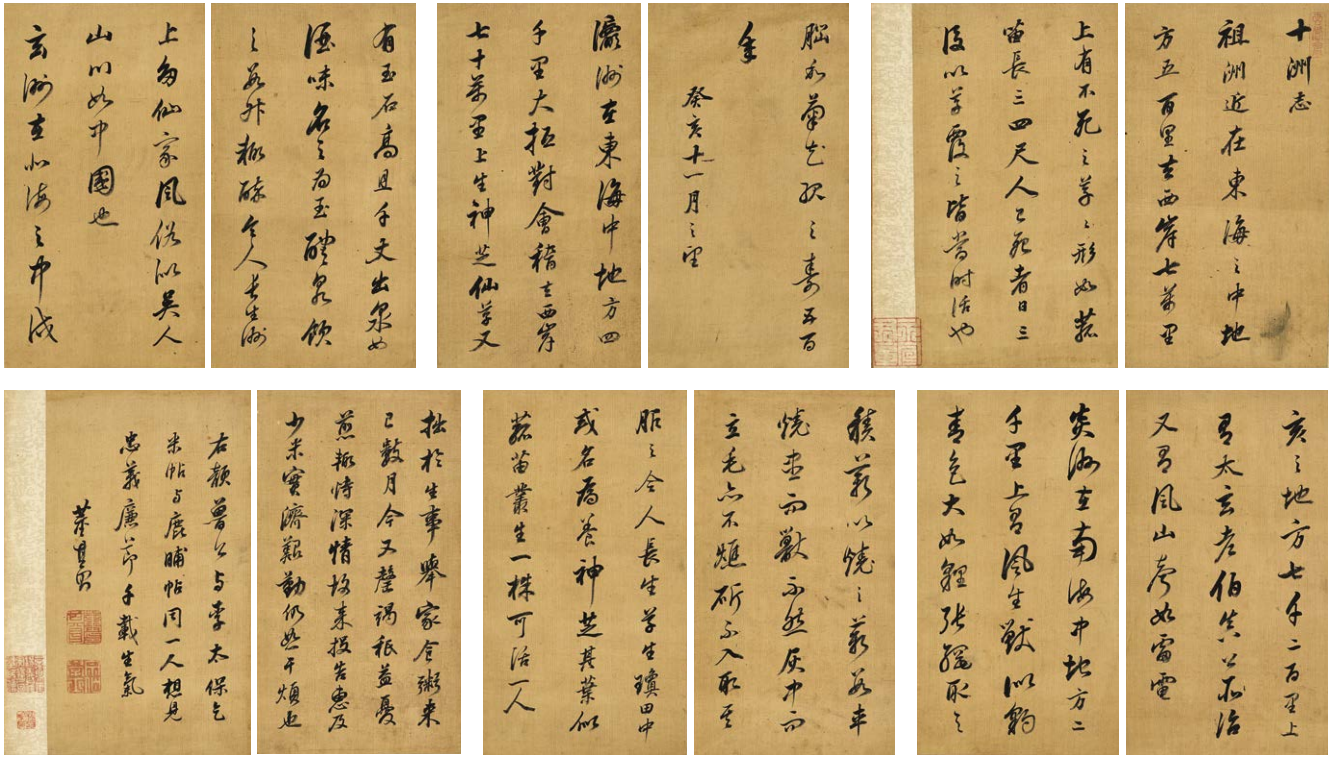 十洲志
祖洲近在東海之中地
方五百里去西岸七萬里
上有不死之草々形如菰
苗長三四尺人已死者日三
後以草覆之皆當時活也
腦和菊花服之壽五百
年
癸亥十一月之望
瀛洲在東海中地方四
千里大抵對會稽去西岸
七十萬里上生神芝仙草又
有玉石高且千丈出泉如
酒味名之為玉醴泉飲
之數升輒醉令人長生洲
上多仙家風俗似吳人
山川如中國也
玄洲在北海之中戌
亥之地方七千二百里上
有太玄老伯真公所治
又有風山聲如雷電
炎洲在南海中地方二
千里上有風生獸似豹
青色大如貍張網取之
積薪以燒之薪數車
燒盡而獸不然灰中而
立毛亦不燋斫不入取其
服之令人長生草生瓊田中
或名為養神芝其葉似
菰苗叢生一株可活一人
拙於生事舉家食粥來
已數月今又罄竭秖益憂
煎輒恃深情故來投告惠及
少米實濟艱勤仍恕干煩也
右顏魯公与李太保乞
米帖与鹿脯帖同一人想見
忠義廉節千載生氣
董其昌